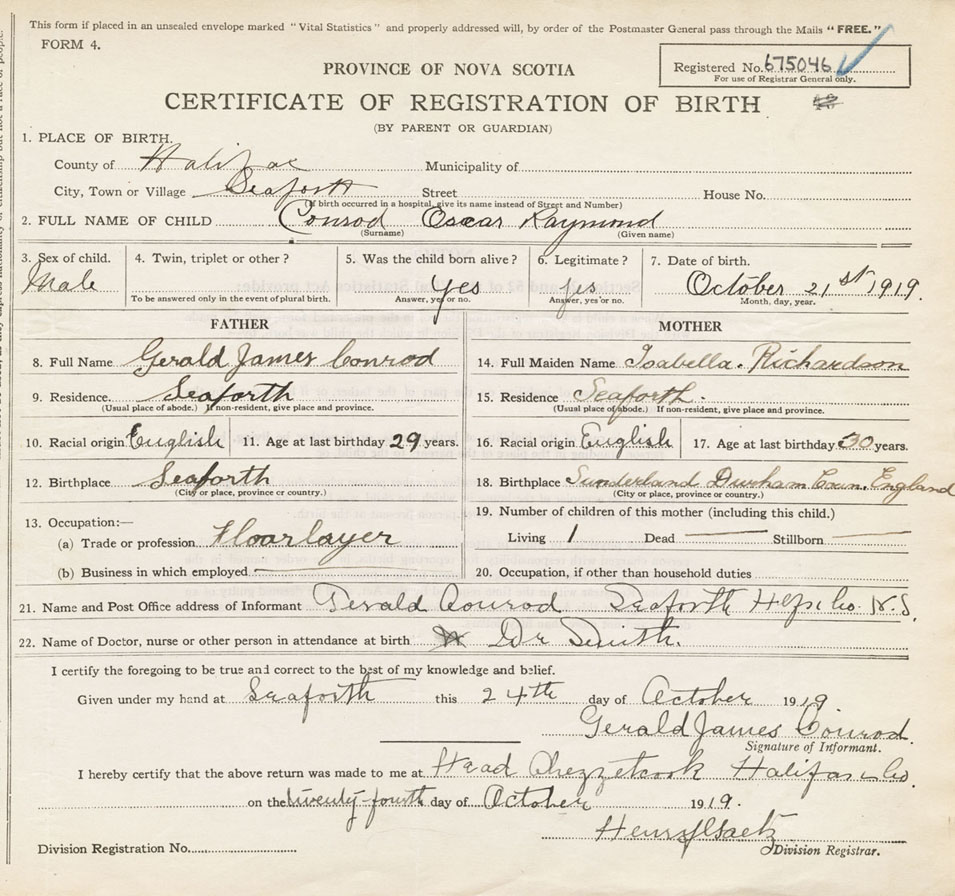 This form if placed in an unsealed envelope marked "Vital Statistics" and properly addressed will, by order of the Postmaster General pass through the Mails "FREE."
FORM 4.
Registered No. 675046
For use of Registrar General only.
PROVINCE OF NOVA SCOTIA
CERTIFICATE OF REGISTRATION OF BIRTH
(BY PARENT OR GUARDIAN)
1. PLACE OF BIRTH.
County of Halifax Municipality of
City, Town or Village Seaforth Street House No.
(If birth occurred in a hospital, give its name instead of Street and Number)
2. FULL NAME OF CHILD Conrod Oscar Raymond
(Surname) (Given name)
3. Sex of child. 4. Twin, triplet or other? 5. Was the child born alive? 6. Legitimate? 7. Date of birth.
Male Yes Yes October 21st 1919.
To be answered only in the event of plural birth. Answer, yes or no. Answer, yes or no. Month, day, year.
FATHER MOTHER
8. Full Name Gerald James Conrod 14. Full Maiden Name Isabella. Richardson
9. Residence. Seaforth 15. Residence Seaforth.
(Usual place of abode.) If non-resident, give place and province. (Usual place of abode.) If non-resident, give place and province.
10. Racial origin English 11. Age at last birthday 29 years. 16. Racial origin English 17. Age at last birthday 30 years.
12. Birthplace Seaforth 18. Birthplace Sunderland Durham Coun. England
(City or place, province or country.) (City or place, province or country.)
13. Occupation:— 19. Number of children of this mother (including this child.)
(a) Trade or profession Floorlayer Living 1 Dead — Stillborn —
(b) Business in which employed — 20. Occupation, if other than household duties
21. Name and Post Office address of Informant Gerald Conrod Seaforth Hfx Co. N.S.
22. Name of Doctor, nurse or other person in attendance at birth Dr Smith.
I certify the foregoing to be true and correct to the best of my knowledge and belief.
Given under my hand at Seaforth this 24th day of October 1919.
Gerald James Conrod.
Signature of Informant.
I hereby certify that the above return was made to me at Head Chezzetcook Halifax Co.
on the twenty-fourth day of October 1919.
Henry
Division Registration No. Division Registrar.